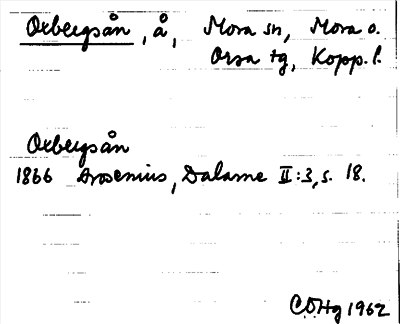 Oxbergsån, å, Mora sn, Mora o.
Orsa tg, Kopp. l.
Oxbergsån
1866 Arosenius, Dalarne II:3, s. 18.
CÖHg 1962